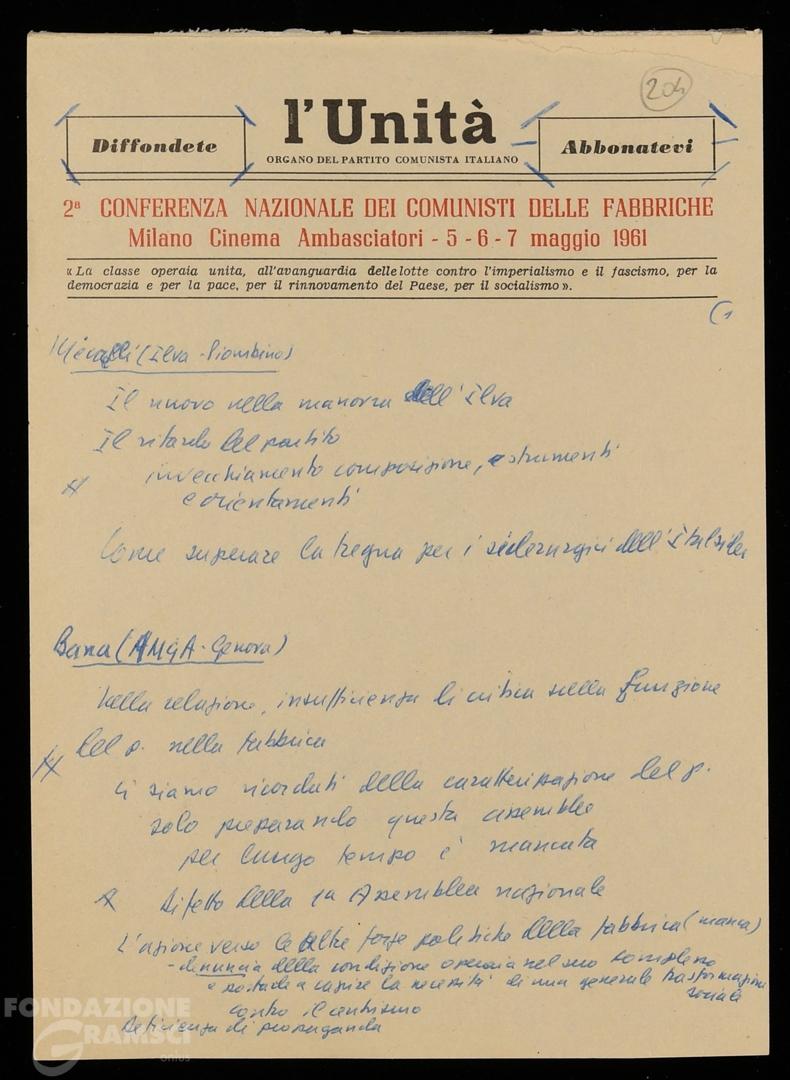 204
Diffondete
l'Unità
ORGANO DEL PARTITO COMUNISTA ITALIANO
Abbonatevi
2ª CONFERENZA NAZIONALE DEI COMUNISTI DELLE FABBRICHE
Milano Cinema Ambasciatori - 5 - 6 - 7 maggio 1961
« La classe operaia unita, all'avanguardia delle lotte contro l'imperialismo e il fascismo, per la
democrazia e per la pace, per il rinnovamento del Paese, per il socialismo ».
(1
(Ilva - Piombino)
Il nuovo nella manovra dell'Ilva
Il ritardo del partito
invecchiamento composizione, strumenti
e orientamenti
Come superare la tregua per i siderurgici dell'Italsider
Bana (AMGA - Genova)
Nella relazione, insufficienza di critica sulla funzione
del p. nella fabbrica
ci siamo ricordati della caratterizzazione del p.
solo preparando questa assemblea
per lungo tempo è mancata
Difetto della 1a Assemblea nazionale
L'azione verso le altre forze politiche della fabbrica (manca)
- denuncia della condizione operaia nel suo complesso
a capire la necessità di una generale trasformazione
sociale
contro il centrismo
deficienza di propaganda
FONDAZIONE
GRAMSCI
onlus